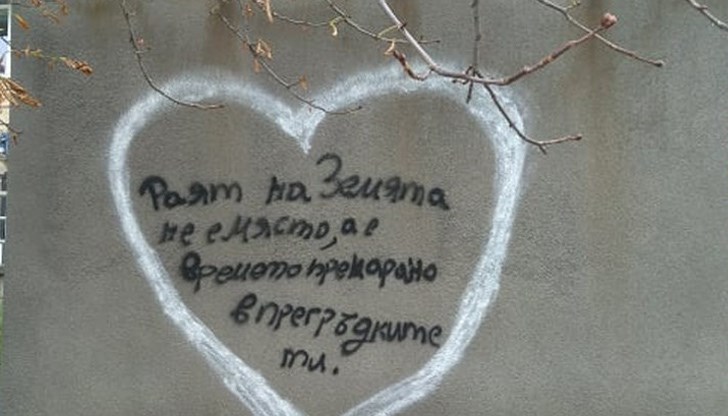 Раят на Земята
не е място, а е
времето прекарано
в прегръдките
ти.